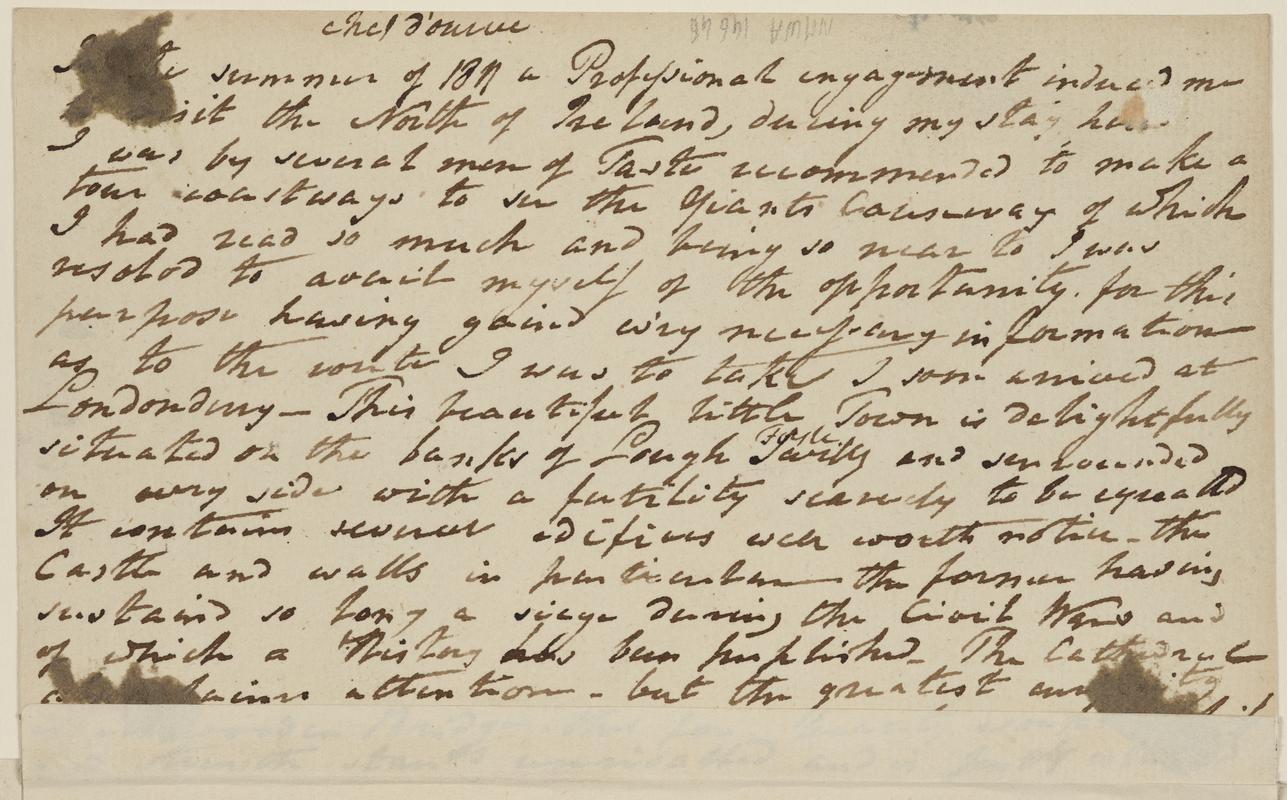 chef d'ouvre
NMWA 14646
summer of 1811 a Professional engagement induced me
visit the North of Ireland, during my stay here
I was by several men of Taste recommended to make a
tour coastways to see the Giants Causeway of which
I had read so much and being so near to I was
resolvd to avail myself of the opportunity. for this
purpose having gaind ev'ry necessary information
as to the route I was to take I soon arrived at
Londonderry— This beautiful little Town is delightfully
situated on the banks of Lough Foyle Swilly and surrounded
on every side with a fertility scarcely to be equalld
It contains several edifices well worth notice - the
Castle and walls in particular — the former having
sustaind so long a siege during the Civil Wars and
of which a History has been puplished - The Cathedral
attention - but the greatest